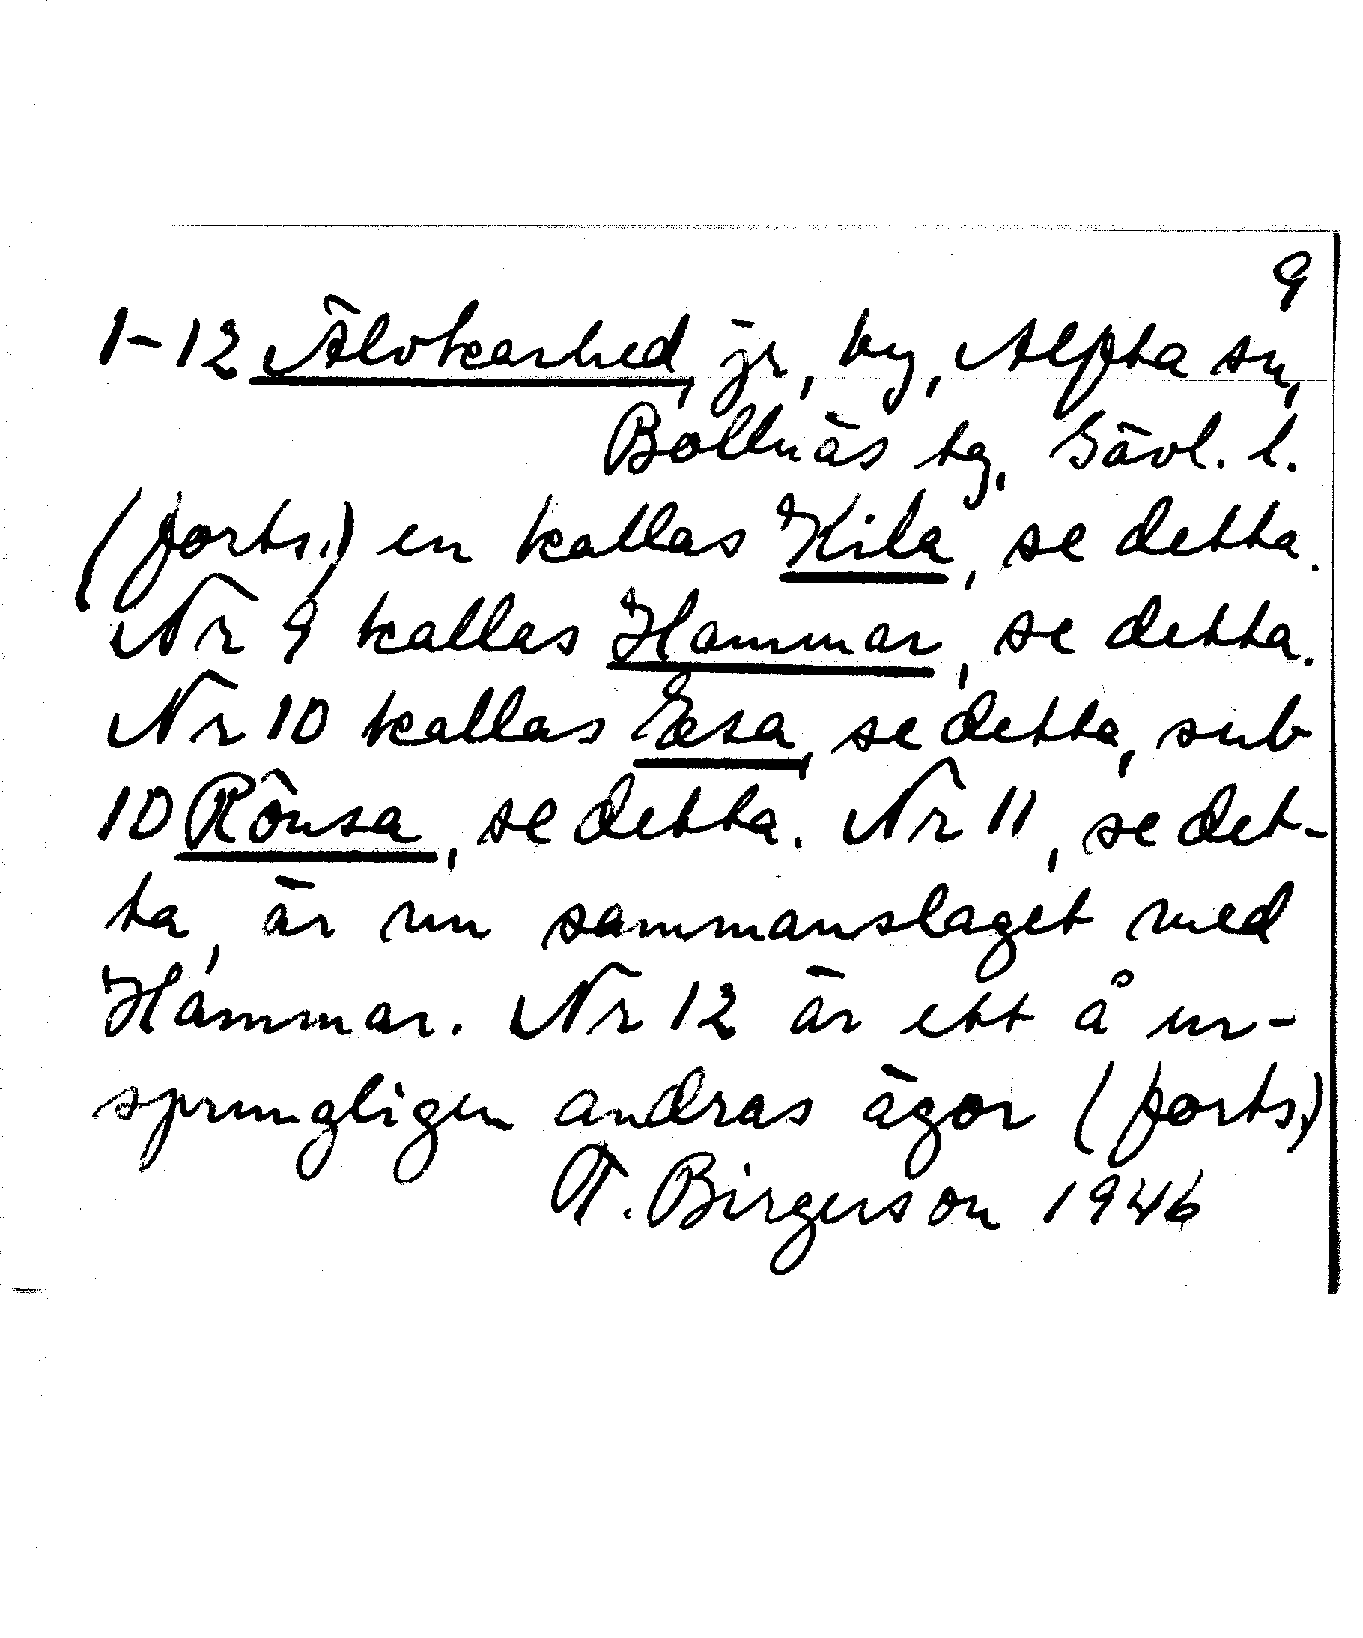 9
1-12 Älvkarhed, jr, by, Alfta sn,
Bollnäs tg, Gävl. l.
(forts.) en kallas Kila, se detta.
Nr 9 kallas Hammar, se detta.
Nr 10 kallas Essa, se detta, sub
10 Rönsa, se detta. Nr 11, se det-
ta, är nu sammanslaget med
Hammar. Nr 12 är ett å ur-
sprungligen andras ägor (forts.)
T. Birgerson 1946